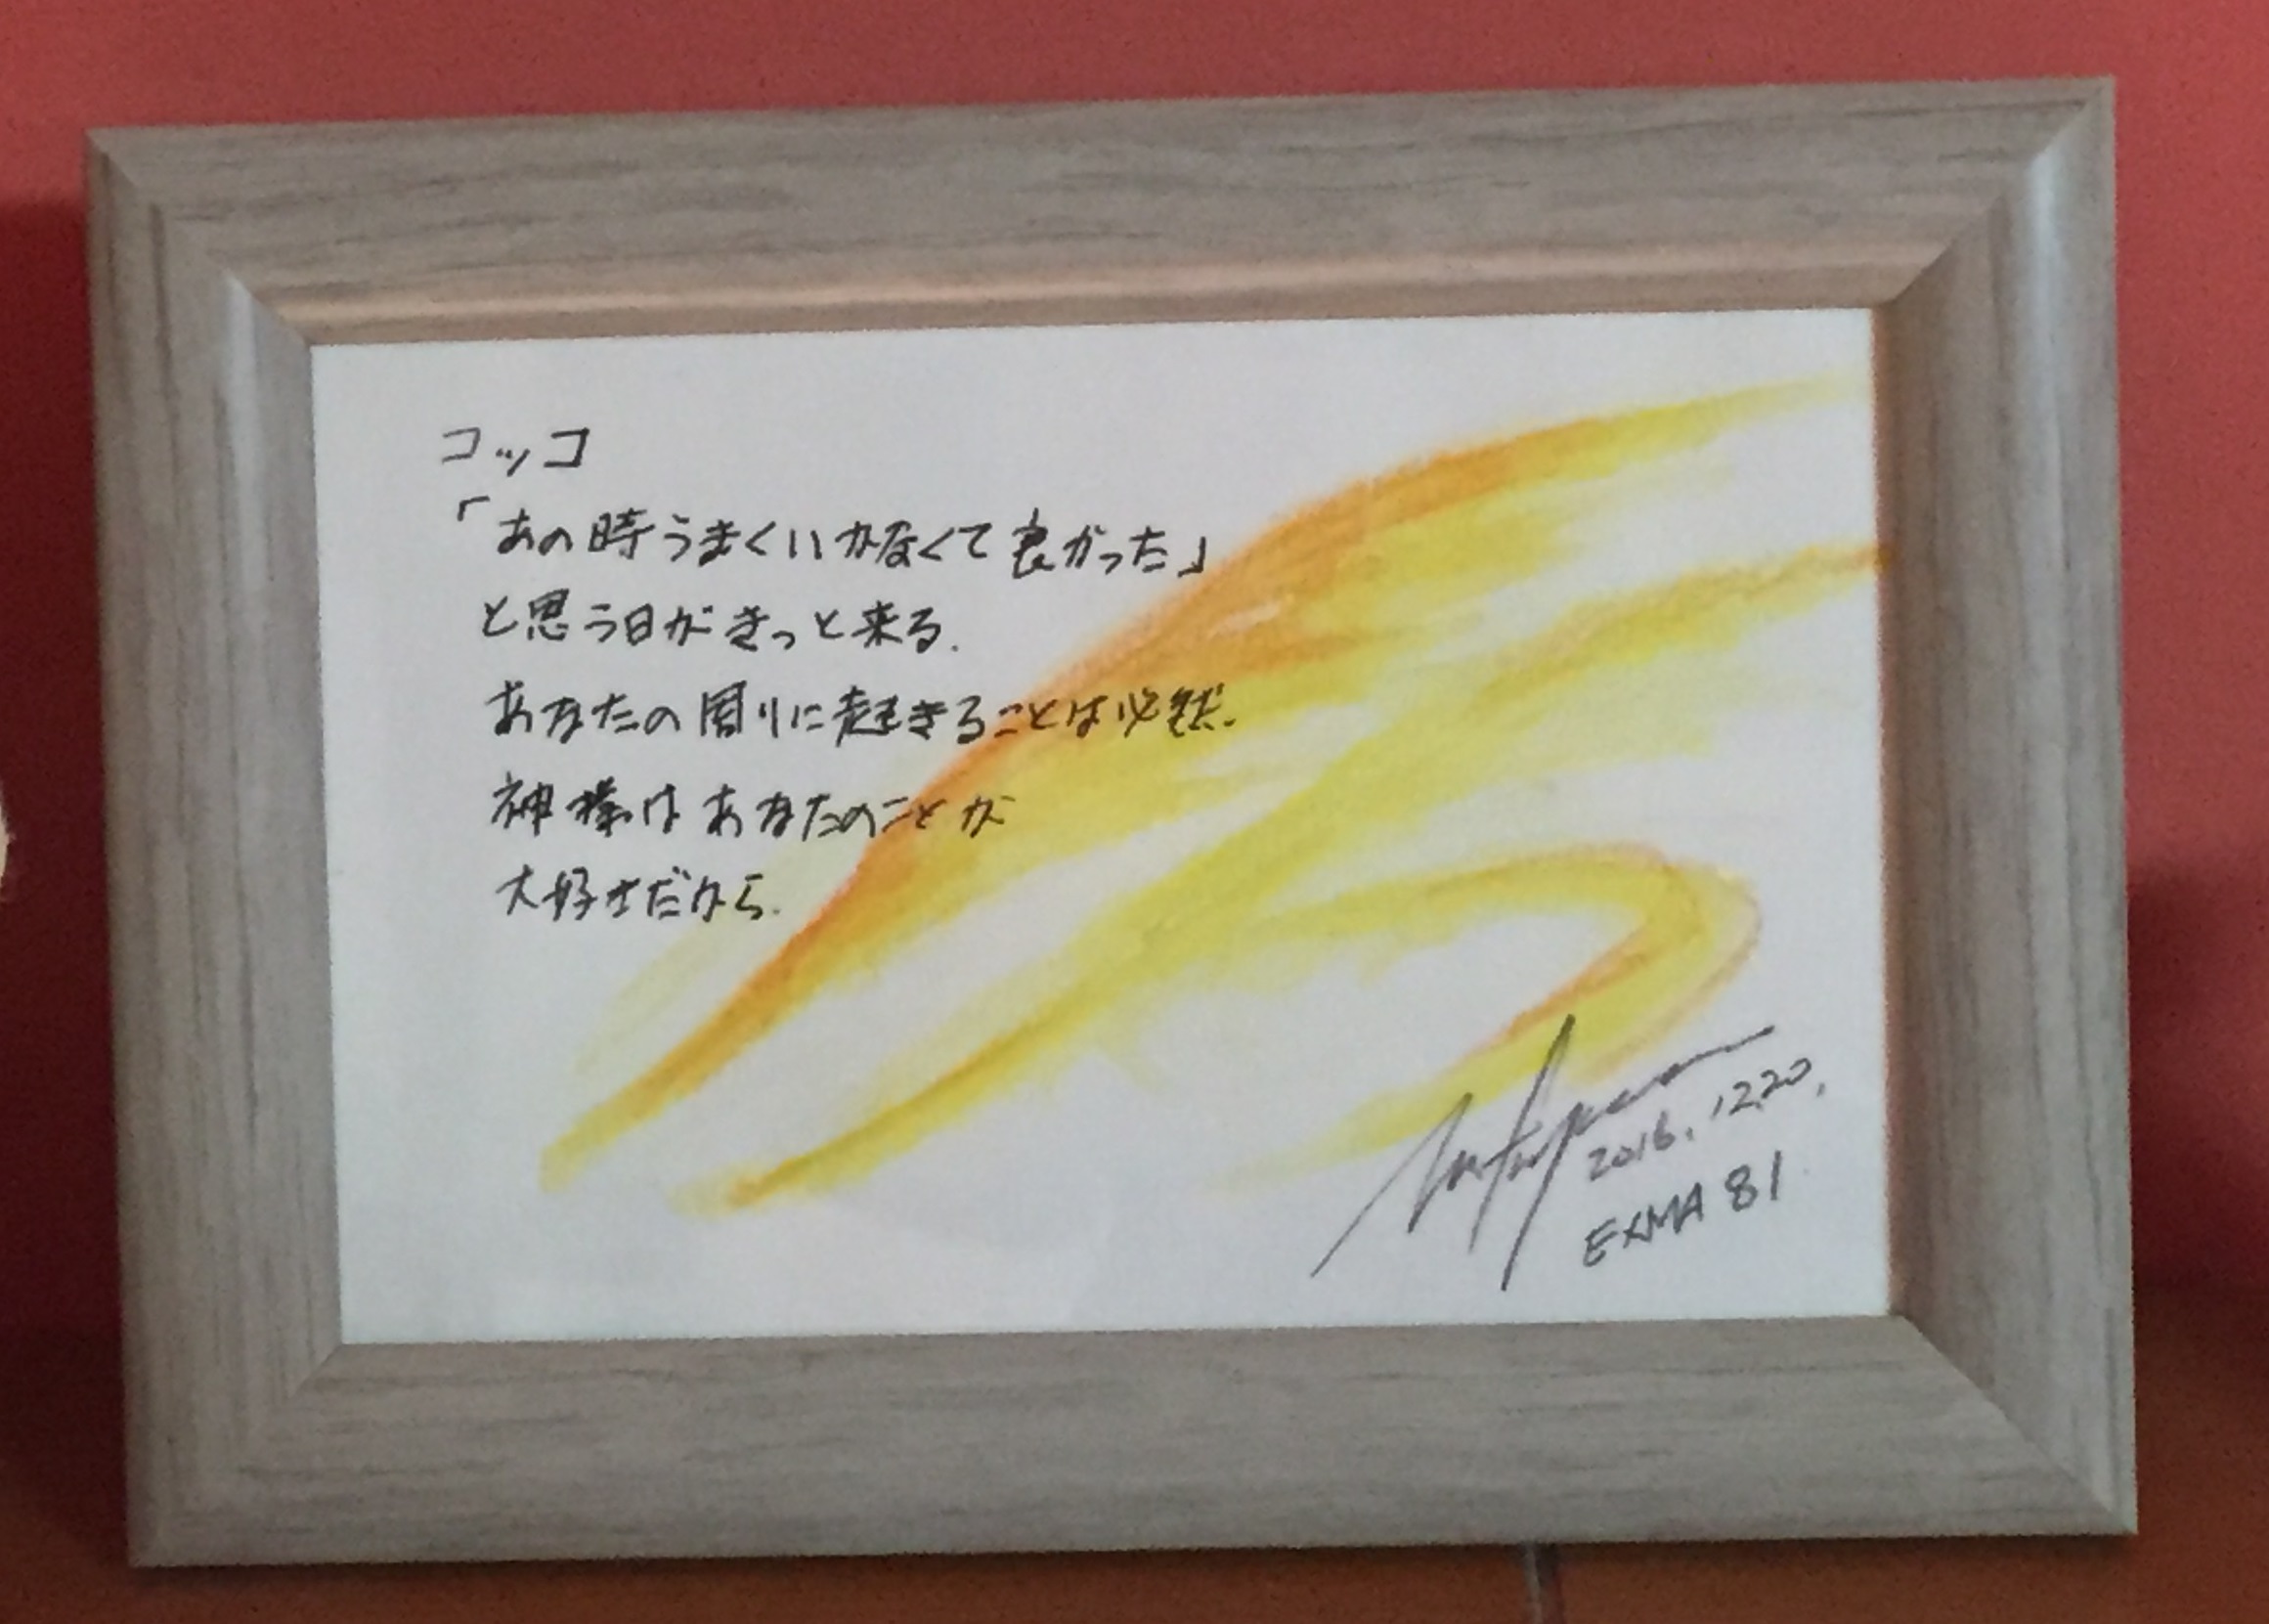 コッコ
「あの時うまくいかなくて良かった」
と思う日がきっと来る.
あなたの周りに起きることは必然.
神様はあなたのことが
大好きだから.
2016.12.20.
EXMA 81